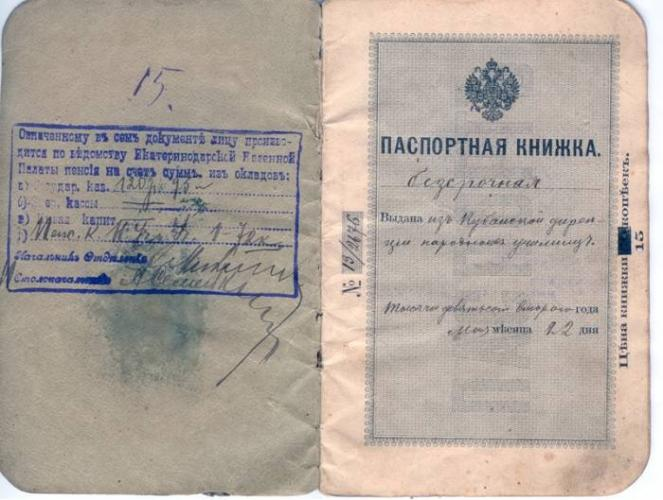 15.
Означенному въ семъ документѣ лицу произво-
дится по вѣдомству Екатеринодарской Казенной
Палаты пенсія на счетъ суммъ, изъ окладовъ:
120 р. 75 к
кассы
капит
Начальникъ Отдѣленія
Столоначальникъ
ПАСПОРТНАЯ КНИЖКА.
безсрочная
Выдана изъ Кубанской дирек-
ціи народныхъ училищъ.
Тысяча девятьсот второго года
мая мѣсяца 22 дня
№ 13/2676
Цѣна книжки 15 копѣекъ.